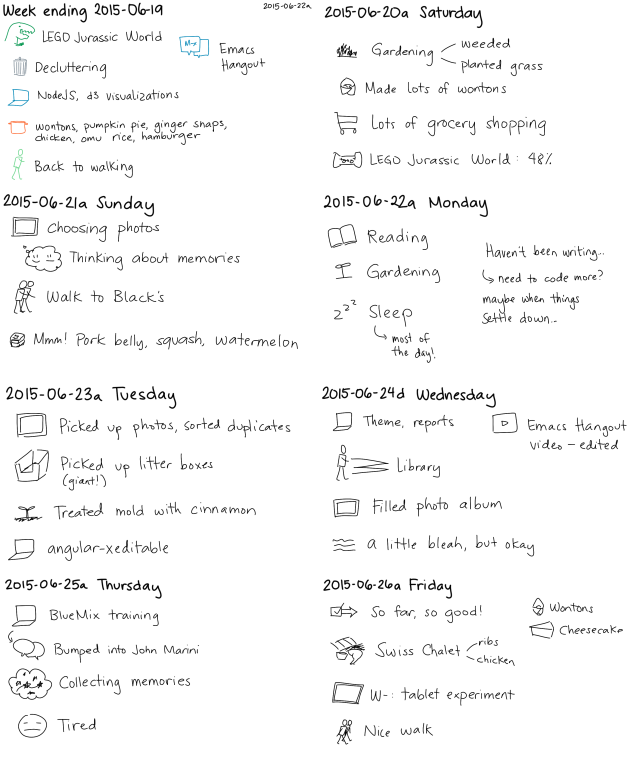 Week ending 2015-06-19
2015-06-22a
LEGO Jurassic World
M-x
Emacs
Hangout
Decluttering
NodeJS, d3 visualizations
wontons, pumpkin pie, ginger snaps,
chicken, omu rice, hamburger
Back to walking
2015-06-20a Saturday
Gardening
weeded
planted grass
Made lots of wontons
Lots of grocery shopping
LEGO Jurassic World: 48%
2015-06-21a Sunday
Choosing photos
Thinking about memories
Walk to Black's
Mmm! Pork belly, squash, watermelon
2015-06-22a Monday
Reading
Gardening
zzz
Sleep
most of
the day!
Haven't been writing...
need to code more?
maybe when things
settle down...
2015-06-23a Tuesday
Picked up photos, sorted duplicates
Picked up litter boxes
(giant!)
Treated mold with cinnamon
angular-xeditable
2015-06-24d Wednesday
Theme, reports
Emacs Hangout
video - edited
Library
Filled photo album
a little bleah, but okay
2015-06-25a Thursday
BlueMix training
Bumped into John Marini
Collecting memories
Tired
2015-06-26a Friday
So far, so good!
Wontons
Cheesecake
Swiss Chalet
ribs
chicken
W-: tablet experiment
Nice walk